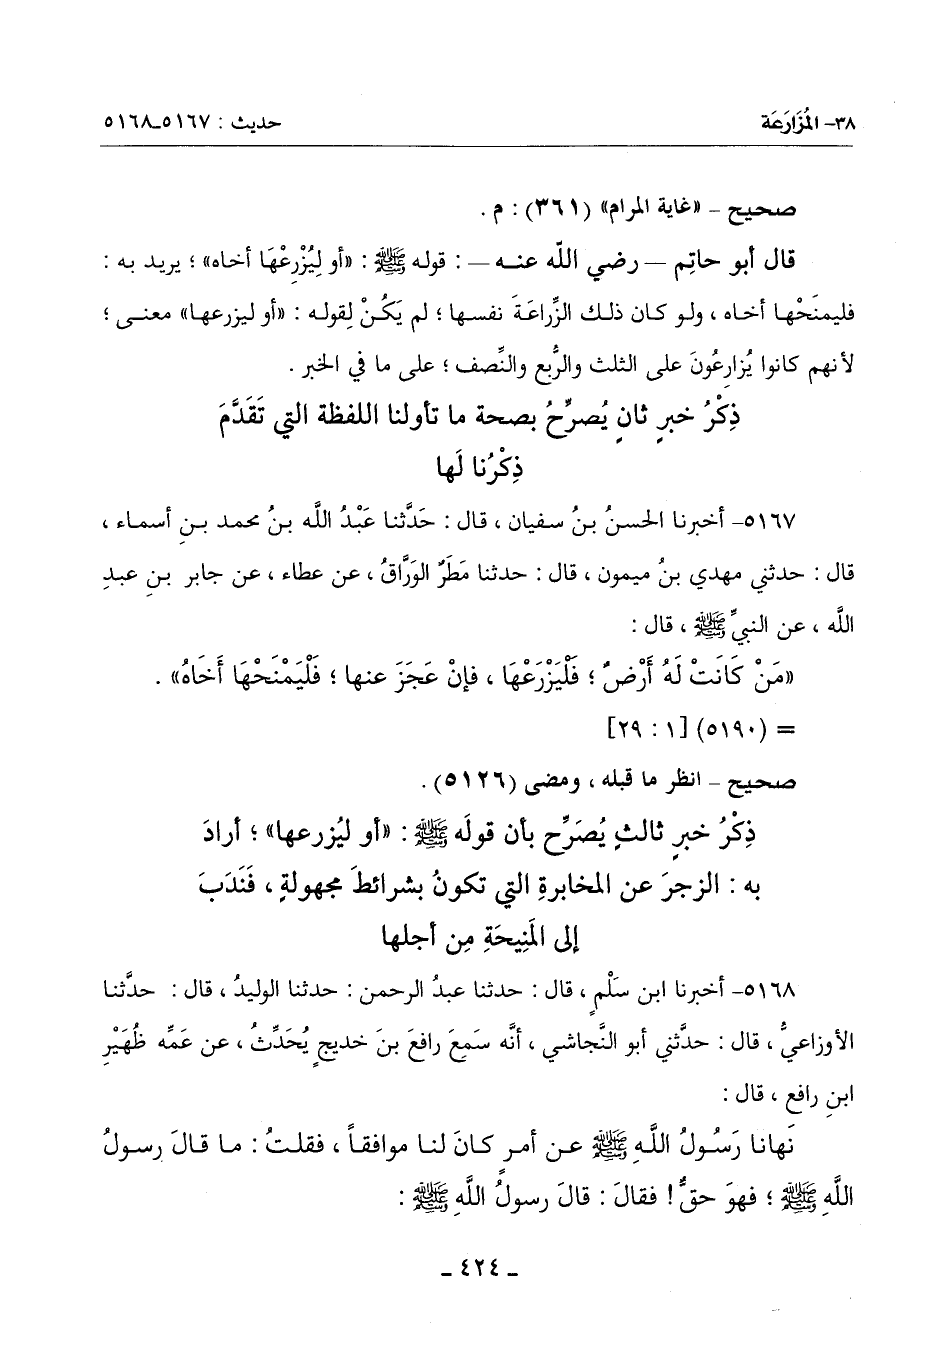 ٣٨- المُزَارَعَة
حديث : ٥١٦٧ـ٥١٦٨
صحيح - «غاية المرام» (٣٦١) : م .
قال أبو حاتِم — رضي اللَّه عنه — : قوله ﷺ : «أو لِيُزْرِعْهَا أخاه» ؛ يريد به :
فليمنَحْها أخاه ، ولو كان ذلك الزِّراعَةَ نفسها ؛ لم يَكُنْ لِقوله : «أو ليزرعها» معنى ؛
لأنهم كانوا يُزارِعُونَ على الثلث والرُّبع والنِّصف ؛ على ما في الخبر .
ذِكْرُ خبرٍ ثانٍ يُصرِّحُ بصحة ما تأولنا اللفظة التي تَقَدَّمَ
ذِكْرُنا لَها
٥١٦٧- أخبرنا الحسنُ بنُ سفيان ، قال : حَدَّثنا عَبْدُ اللَّه بنُ محمد بنِ أسماء ،
قال : حدثني مهدي بنُ ميمون ، قال : حدثنا مَطَرٌ الوَرَّاقُ ، عن عطاء ، عن جابر بنِ عبدِ
اللَّه ، عن النبيِّ ﷺ ، قال :
«مَنْ كَانَتْ لَهُ أَرْضٌ ؛ فَلْيَزْرَعْهَا ، فإنْ عَجَزَ عنها ؛ فَلْيَمْنَحْهَا أَخَاهُ» .
= (٥١٩٠) [١ : ٢٩]
صحيح - انظر ما قبله ، ومضى (٥١٢٦) .
ذِكْرُ خبرٍ ثالثٍ يُصَرِّح بأن قولَه ﷺ : «أو ليُزرعها» ؛ أرادَ
به : الزجرَ عن المخابرةِ التي تكونُ بشرائطَ مجهولةٍ ، فَنَدَبَ
إلى المَنِيحَةِ مِن أجلها
٥١٦٨- أخبرنا ابن سَلْمٍ ، قال : حدثنا عبدُ الرحمن : حدثنا الوليدُ ، قال : حدَّثنا
الأوزاعيُّ ، قال : حدَّثني أبو النَّجاشي ، أنَّه سمَعَ رافعَ بنَ خديجٍ يُحَدِّثُ ، عن عَمِّه ظُهَيْرِ
ابنِ رافع ، قال :
نَهانا رَسُولُ اللَّهِ ﷺ عن أمرٍ كانَ لنا موافقاً ، فقلتُ : ما قالَ رسولُ
اللَّهِ ﷺ ؛ فهوَ حقٌّ ! فقالَ : قالَ رسولُ اللَّهِ ﷺ :
ـ ٤٢٤ ـ